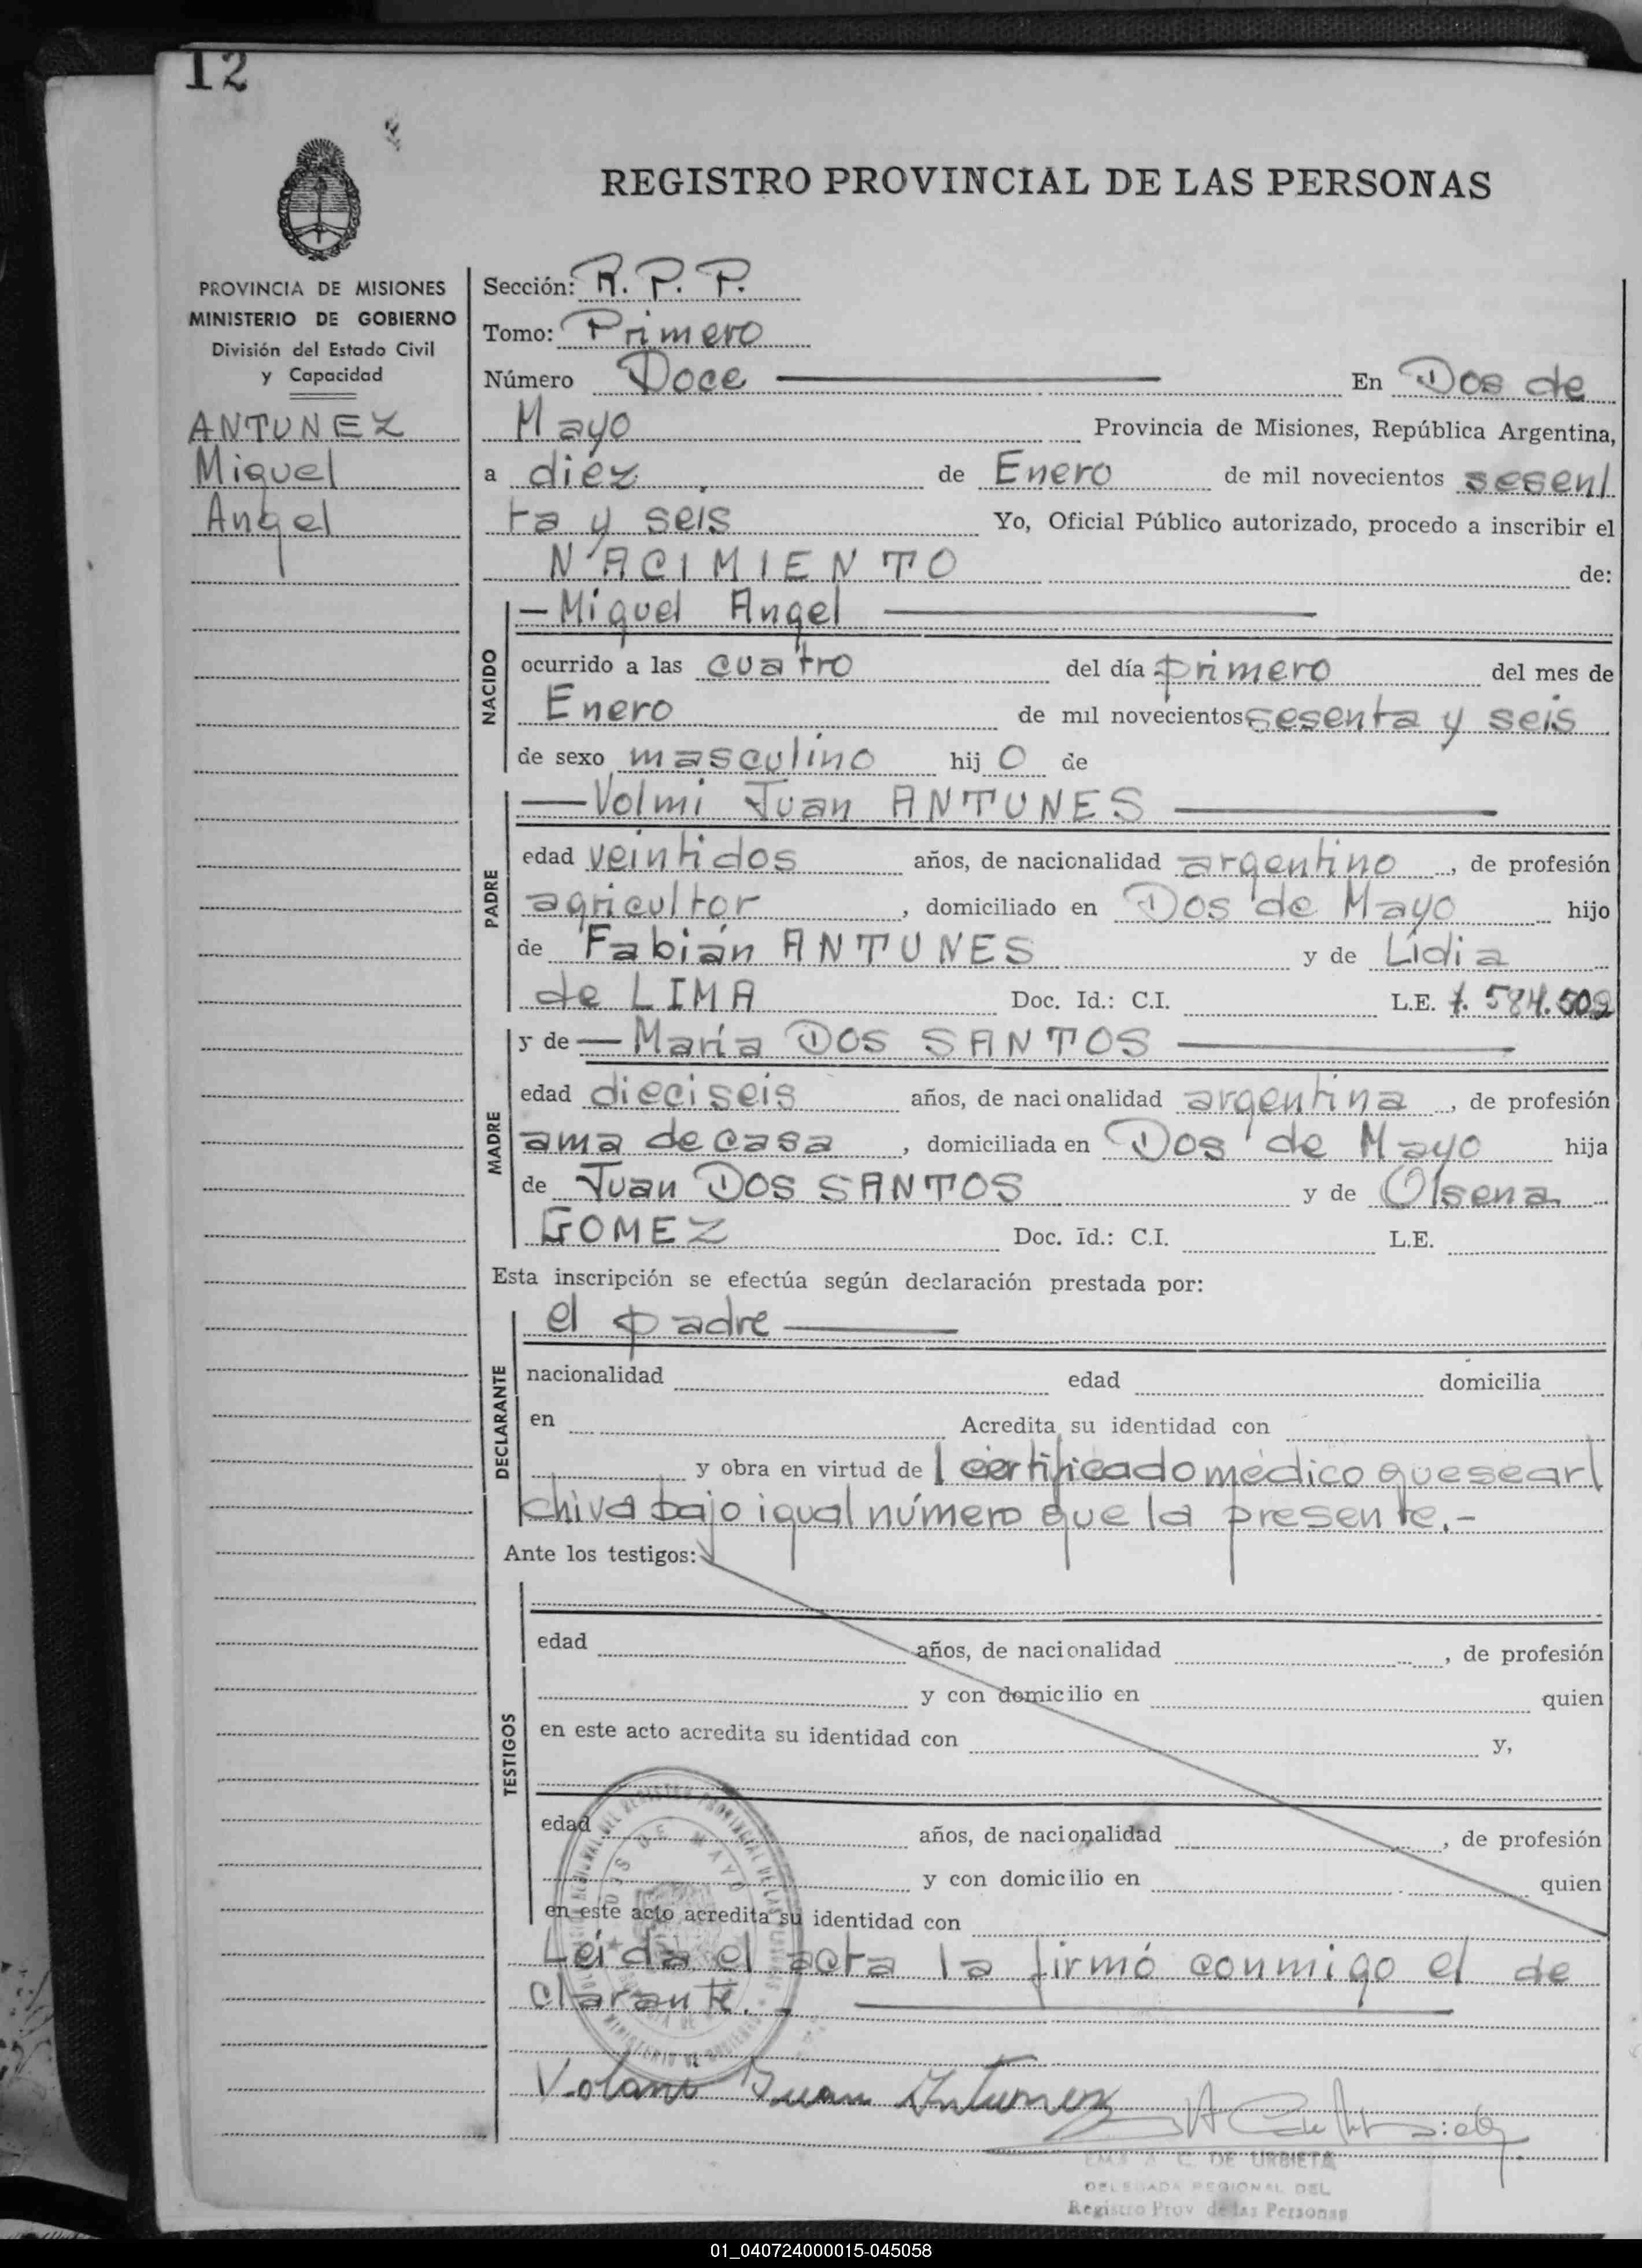 12
REGISTRO PROVINCIAL DE LAS PERSONAS
PROVINCIA DE MISIONES
MINISTERIO DE GOBIERNO
División del Estado Civil
y Capacidad
ANTUNEZ
Miguel
Angel
Sección: R. P. P.
Tomo: Primero
Número Doce En Dos de
Mayo Provincia de Misiones, República Argentina,
a diéz de Enero de mil novecientos sesen/
ta y seis Yo, Oficial Público autorizado, procedo a inscribir el
NACIMIENTO de:
NACIDO
— Miguel Angel —
ocurrido a las cuatro del día primero del mes de
Enero de mil novecientos sesenta y seis
de sexo masculino hij O de
PADRE
— Volmi Juan ANTUNES —
edad veintidos años, de nacionalidad argentino, de profesión
agricultor, domiciliado en Dos de Mayo hijo
de Fabián ANTUNES y de Lídia
de LIMA Doc. Id.: C.I. L.E. 7.584.502
MADRE
y de — María DOS SANTOS —
edad dieciseis años, de nacionalidad argentina, de profesión
ama de casa, domiciliada en Dos de Mayo hija
de Juan DOS SANTOS y de Olsena
GOMEZ Doc. Id.: C.I. L.E.
Esta inscripción se efectúa según declaración prestada por:
DECLARANTE
el padre —
nacionalidad edad domicilia
en Acredita su identidad con
y obra en virtud de | certificado médico que se ar/
chiva bajo igual número que la presente.-
Ante los testigos:
TESTIGOS
edad años, de nacionalidad , de profesión
y con domicilio en quien
en este acto acredita su identidad con y,
edad años, de nacionalidad , de profesión
y con domicilio en quien
en este acto acredita su identidad con
Leída el acta la firmó conmigo el de
clarante. . —
Juan Antunez
C. DE URBIETA
DELEGADA REGIONAL DEL
Registro Prov de las Personas
01_040724000015-045058